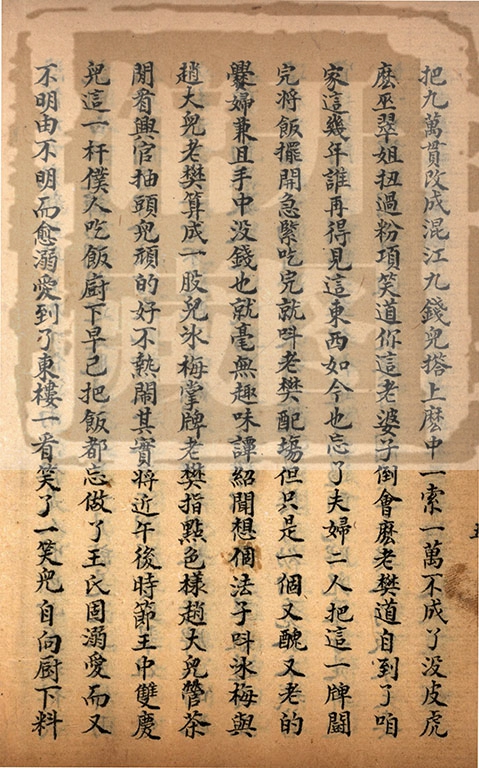 把九萬貫改成混江九錢兒搭上麽中一索一萬不成了没皮虎
麽巫翠姐扭過粉項笑道你這老婆子倒會麽老樊道自到了咱
家這幾年誰再得見這東西如今也忘了夫婦二人把這一牌鬬
完將飯擺開急緊吃完就呌老樊配塲但只是一個又醜又老的
爨婦兼且手中没錢也就毫無趣味譚紹聞想個法子呌冰梅與
趙大兒老樊算成一股兒冰梅掌牌老樊指點色樣趙大兒營茶
閒看興官抽頭兒頑的好不熱鬧其實將近午後時節王中雙慶
兒這一杆僕人吃飯厨下早已把飯都忘做了王氏因溺愛而又
不明由不明而愈溺愛到了東樓一看笑了一笑兒自向厨下料